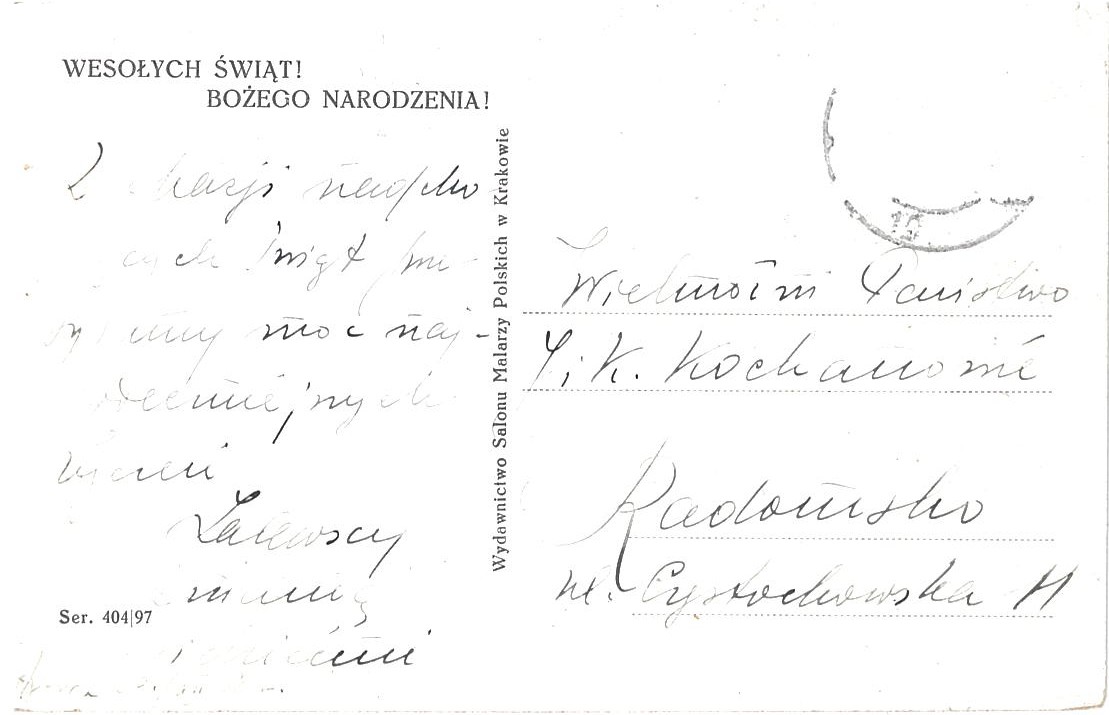 WESOŁYCH ŚWIĄT!
BOŻEGO NARODZENIA!
Z okazji nadcho
cych Świąt prze
syłamy moc naj-
serdeczniejszych
życzeń
Zalewscy
z mamą
Ser. 404|97
Wydawnictwo Salonu Malarzy Polskich w Krakowie
15
Wielmożni Państwo
J. K. Kochanowie
Radomsko
ul. Częstochowska 11